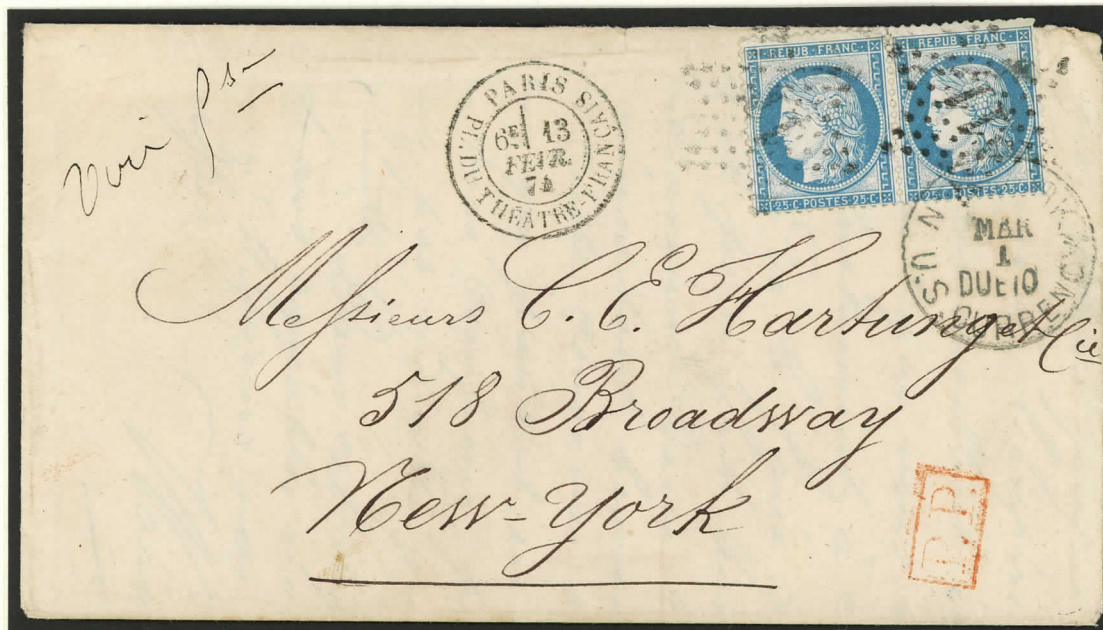 PARIS
PL. DU THÉATRE-FRANÇAIS
6E 13
FEVR.
74
REPUB·FRANC·
25·C·POSTES·25·C·
REPUB·FRANC·
25·C·POSTES·25·C·
MAR
1
DUE 10
U.S. CURRENCY
Messieurs C. E. Hartung et Cie
518 Broadway
New-York
P.P.